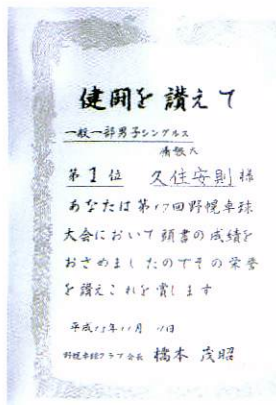 健闘を讃えて
一般一部男子シングルス
備報人
第1位 久住安則様
あなたは第17回野幌卓球
大会において頭書の成績を
おさめましたのでその栄誉
を讃えこれを賞します
平成13年11月11日
野幌卓球クラブ会長 橋本茂昭